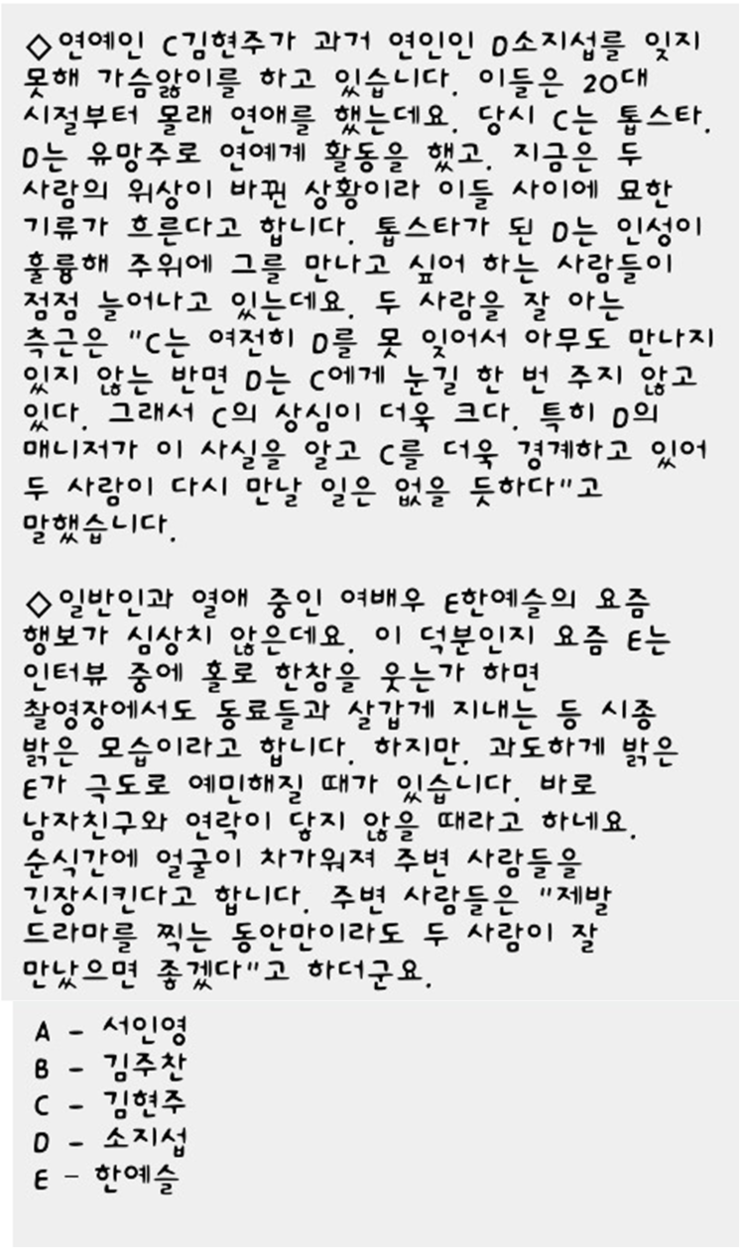 ◇연예인 C김현주가 과거 연인인 D소지섭를 잊지
못해 가슴앓이를 하고 있습니다. 이들은 20대
시절부터 몰래 연애를 했는데요. 당시 C는 톱스타.
D는 유망주로 연예계 활동을 했고. 지금은 두
사람의 위상이 바뀐 상황이라 이들 사이에 묘한
기류가 흐른다고 합니다. 톱스타가 된 D는 인성이
훌륭해 주위에 그를 만나고 싶어 하는 사람들이
점점 늘어나고 있는데요. 두 사람을 잘 아는
측근은 "C는 여전히 D를 못 잊어서 아무도 만나지
있지 않는 반면 D는 C에게 눈길 한 번 주지 않고
있다. 그래서 C의 상심이 더욱 크다. 특히 D의
매니저가 이 사실을 알고 C를 더욱 경계하고 있어
두 사람이 다시 만날 일은 없을 듯하다"고
말했습니다.
◇일반인과 열애 중인 여배우 E한예슬의 요즘
행보가 심상치 않은데요. 이 덕분인지 요즘 E는
인터뷰 중에 홀로 한참을 웃는가 하면
촬영장에서도 동료들과 살갑게 지내는 등 시종
밝은 모습이라고 합니다. 하지만. 과도하게 밝은
E가 극도로 예민해질 때가 있습니다. 바로
남자친구와 연락이 닿지 않을 때라고 하네요.
순식간에 얼굴이 차가워져 주변 사람들을
긴장시킨다고 합니다. 주변 사람들은 "제발
드라마를 찍는 동안만이라도 두 사람이 잘
만났으면 좋겠다"고 하더군요.
A - 서인영
B - 김주찬
C - 김현주
D - 소지섭
E - 한예슬